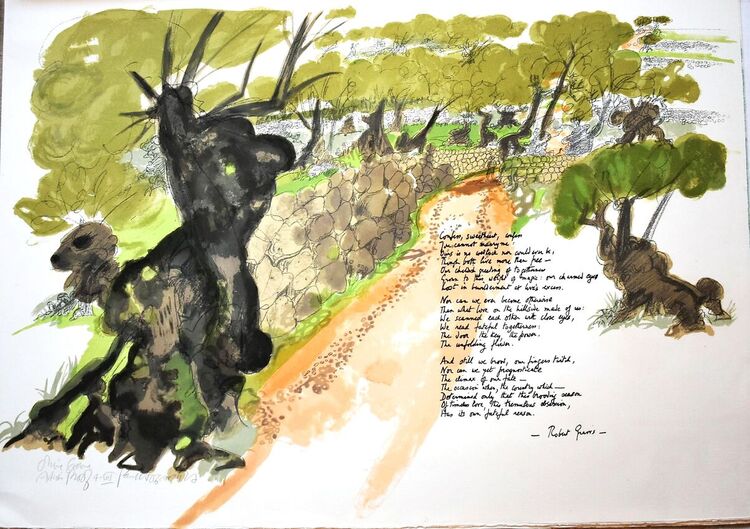 Confess, sweetheart, confess
You cannot marry me:
This is no wedlock nor could ever be,
Though both live more than free —
Our clasped of togetherness
to this world of magic: our charmed eyes
Lost in bewilderment at love's excess.
Nor can we ever become otherwise
Than what love on the hillside made of us:
We scanned each other with close eyes,
We read fateful togetherness:
The door, the key, the power.
The unfolding flower.
And still we brood, our fingers twitch,
Nor can we yet prognosticate
The climax of our fate —
The occasion when, the country which —
Determined only that this brooding season
Of timeless love, this tremulous obsession,
Has its own fateful reason.
— Robert Graves —
Olive Grove
Artist Proof